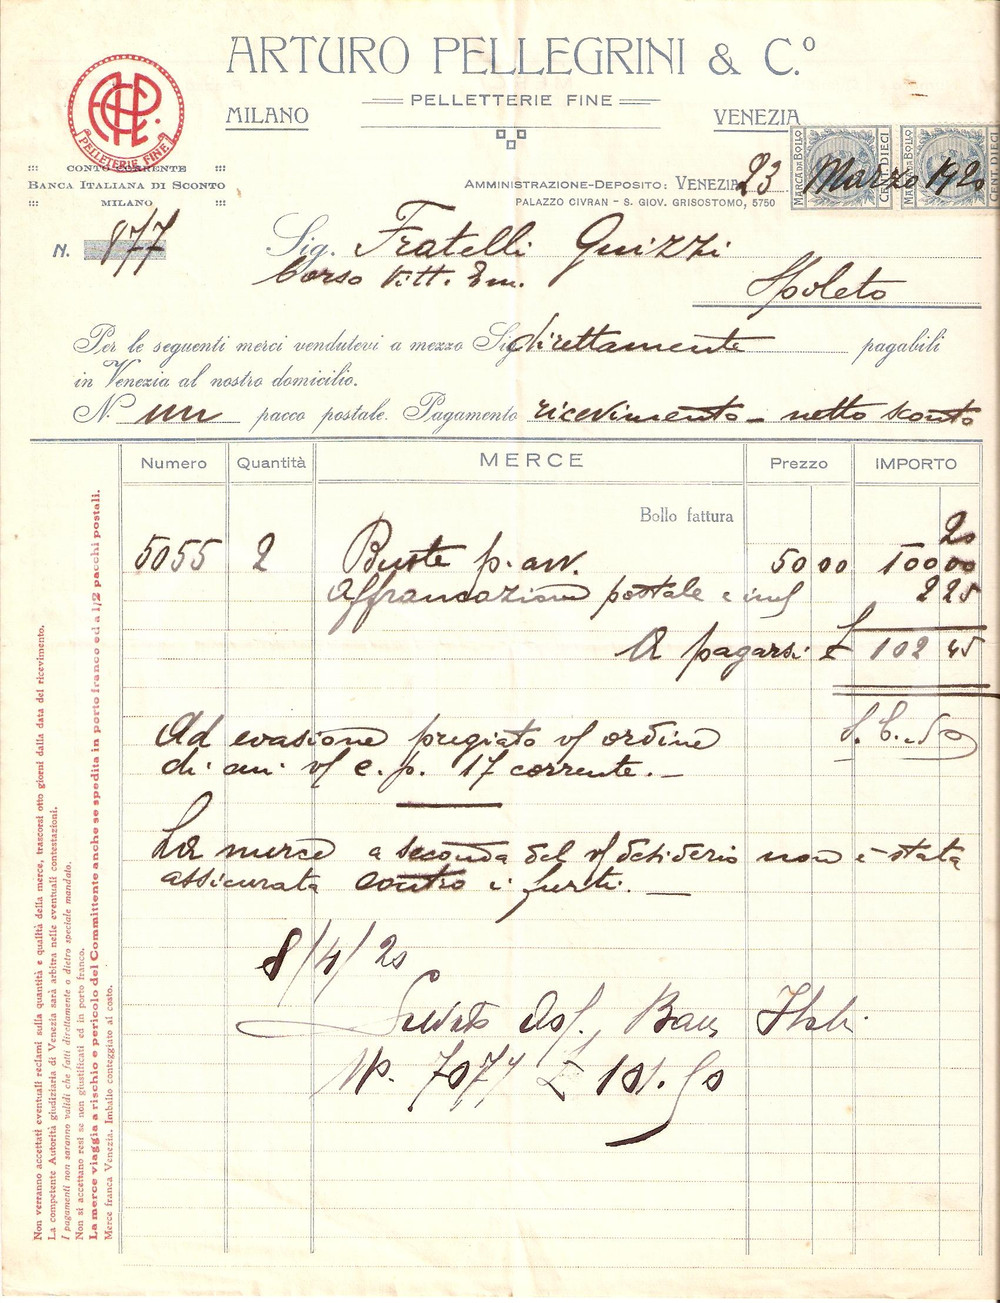 ARTURO PELLEGRINI & C.º
PELLETTERIE FINE
MILANO
VENEZIA
PELLETTERIE FINE
CONTO CORRENTE
BANCA ITALIANA DI SCONTO
MILANO
AMMINISTRAZIONE-DEPOSITO: VENEZIA 23 Marzo 1920
PALAZZO CIVRAN - S. GIOV. GRISOSTOMO, 5750
MARCA DA BOLLO CENT. DIECI
MARCA DA BOLLO CENT. DIECI
N. 877
Sig. Fratelli Guizzi
Corso Vitt. Em.
Spoleto
Per le seguenti merci vendutevi a mezzo Sig. direttamente pagabili
in Venezia al nostro domicilio.
N. un pacco postale. Pagamento ricevimento - netto sconto
Numero Quantità MERCE Prezzo IMPORTO
Bollo fattura 20
5055 2 Buste p. avv. 50 00 100 00
Affrancazione postale e 2 25
A pagarsi £ 102 45
Ad evasione pregiato v/ ordine
di cui v/ c. p. 17 corrente. -
La merce a seconda del v/ desiderio non è stata
assicurata contro i furti. -
8/4/20
Banc Ital.
N. 7077 £ 101.90
Non verranno accettati eventuali reclami sulla quantità e qualità della merce, trascorsi otto giorni dalla data del ricevimento.
La competente Autorità giudiziaria di Venezia sarà arbitra nelle eventuali contestazioni.
I pagamenti non saranno validi che fatti direttamente o dietro speciale mandato.
Non si accettano resi se non giustificati ed in porto franco.
La merce viaggia a rischio e pericolo del Committente anche se spedita in porto franco ed a 1/2 pacchi postali.
Merce franca Venezia. Imballo conteggiato al costo.